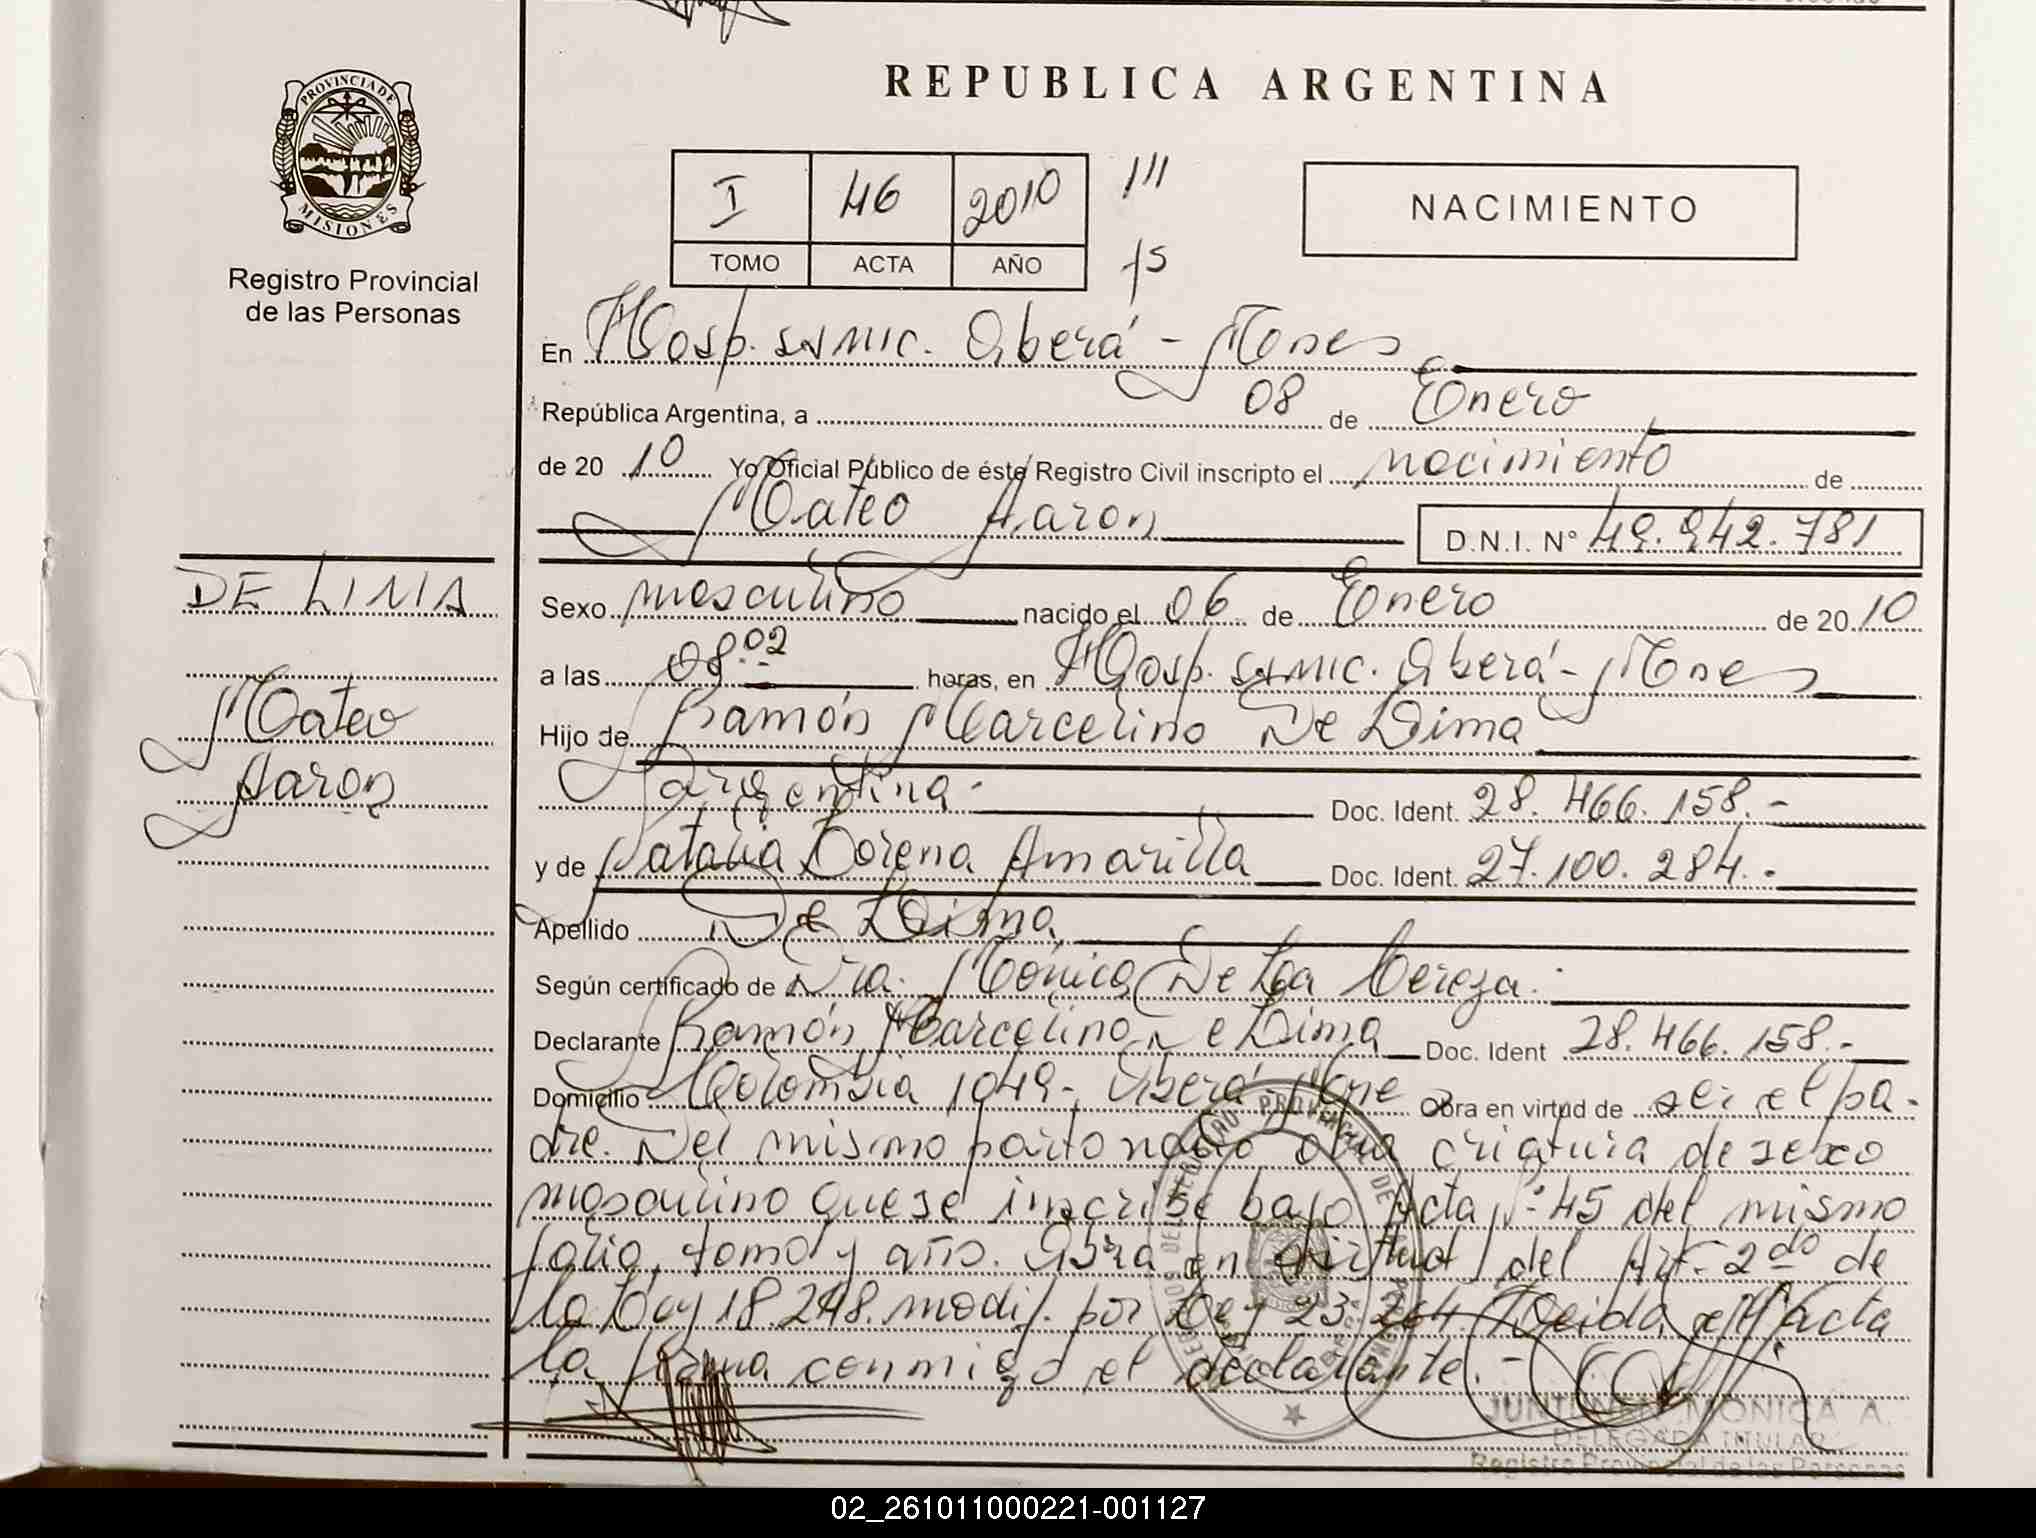 REPUBLICA ARGENTINA
PROVINCIA DE
MISIONES
Registro Provincial
de las Personas
I 46 2010 111
TOMO ACTA AÑO fs
NACIMIENTO
En Hosp. SAMIC. Oberá - Mones
República Argentina, a 08 de Enero
de 20 10 Yo Oficial Público de éste Registro Civil inscripto el nacimiento de
Mateo Aaron D.N.I. N° 49.942.781
DE LIMA
Mateo
Aaron
Sexo masculino nacido el 06 de Enero de 20 10
a las 08.02 horas, en Hosp. SAMIC. Oberá - Mones
Hijo de Ramón Marcelino De Lima
argentina.- Doc. Ident. 28.466.158.-
y de Natalia Lorena Amarilla Doc. Ident. 27.100.284.-
Apellido De Lima
Según certificado de Dra. Mónica De La Cereza.
Declarante Ramón Marcelino De Lima Doc. Ident 28.466.158.-
Domicilio Colombia 1049- Oberá Mnes Obra en virtud de ser el pa-
dre. Del mismo parto nació otra criatura de sexo
masculino que se inscribe bajo Acta N° 45 del mismo
folio, tomo y año. Obra en virtud del Art. 2do de
la Ley 18.248. modif. por Ley 23.264. Leída el Acta
la firma conmigo el declarante.-
MONICA A.
DELEGADA TITULAR
Registro Provincial de las Personas
02_261011000221-001127